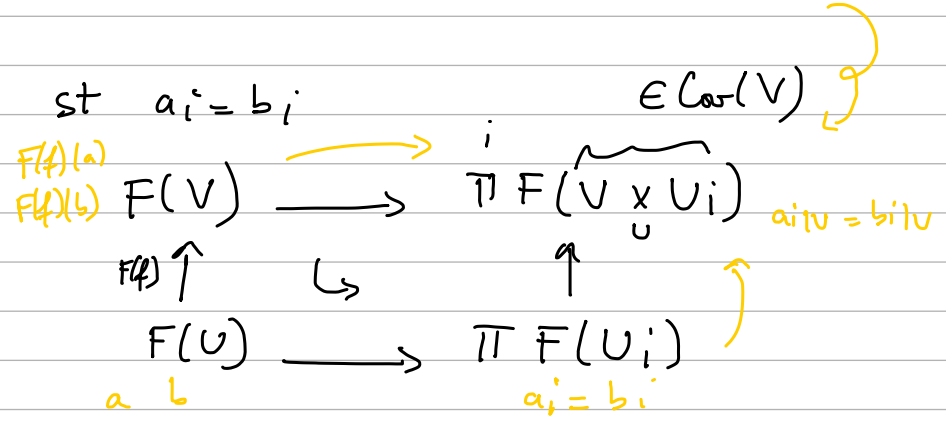 st aᵢ = bᵢ ∈ Cov(V)
F(f)(a) i
F(f)(b) F(V) ⟶ π F(V ×_U Uᵢ) aᵢ|V = bᵢ|V
F(f) ↑ ↳ ↑
F(U) ⟶ π F(Uᵢ)
a b aᵢ = bᵢ